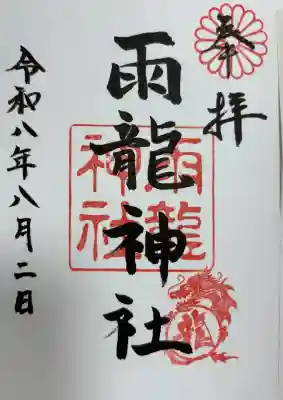 奉拝
雨龍神社
雨龍神社
龍
令和八年八月二日